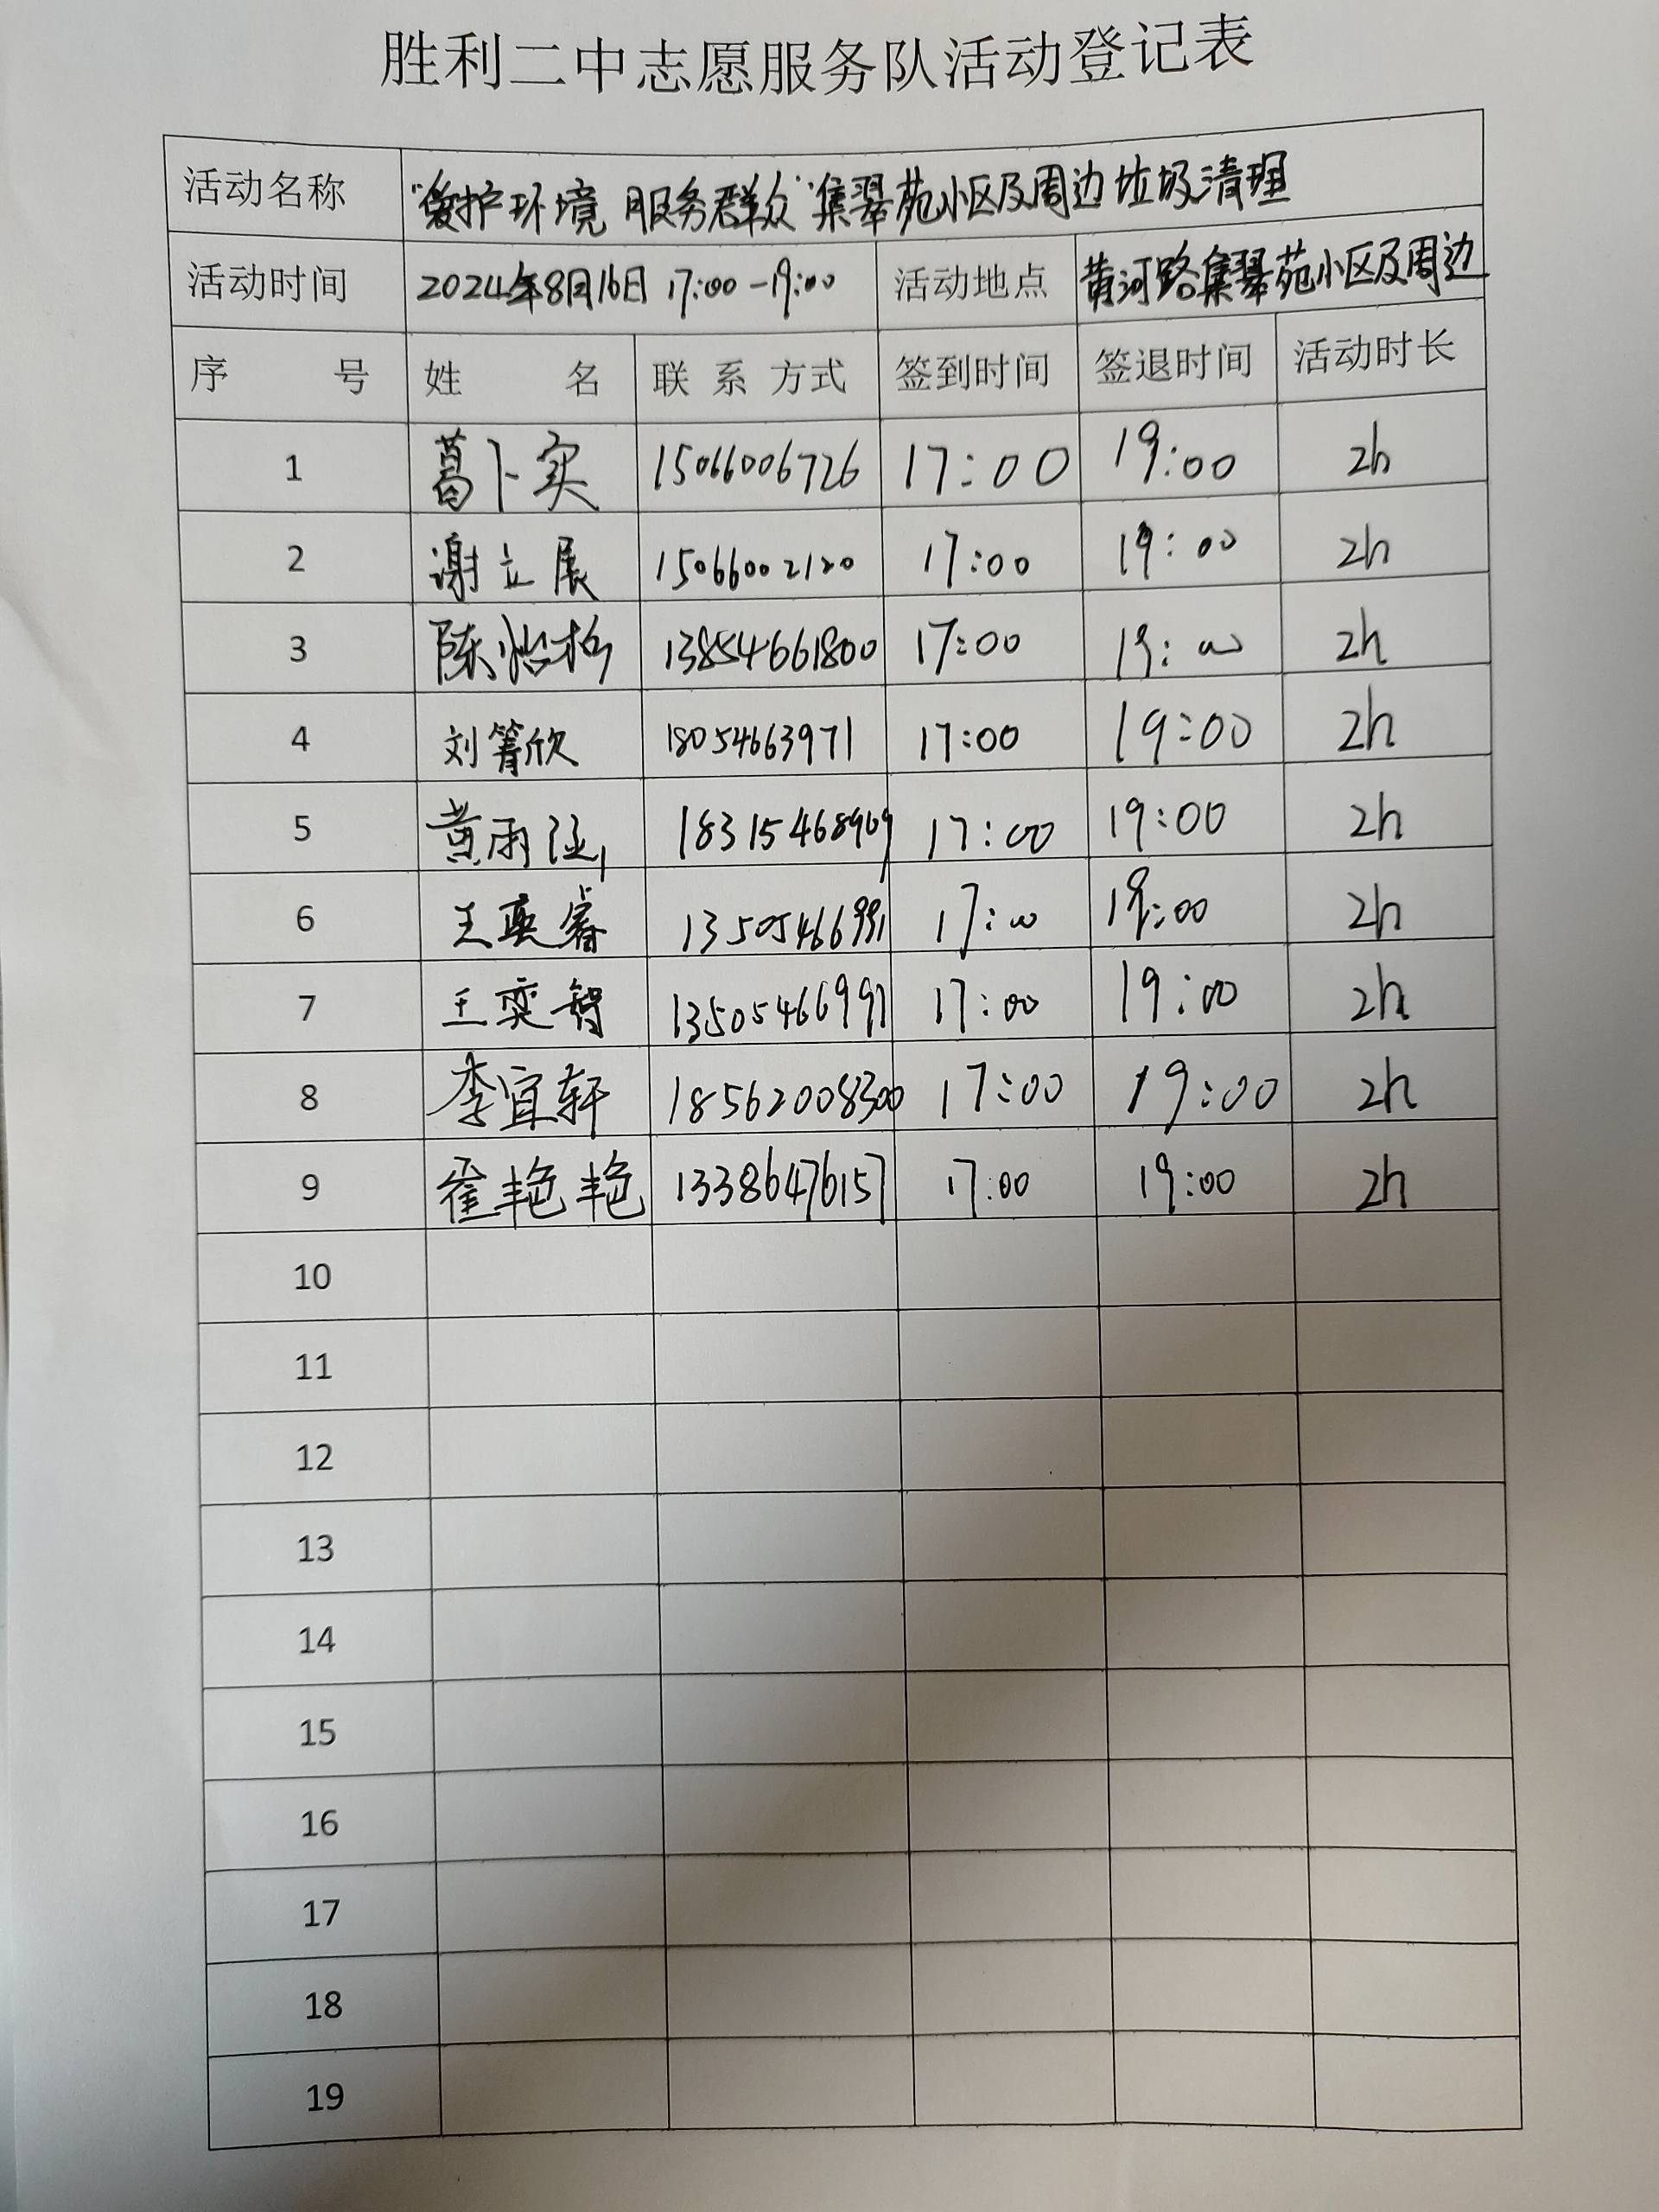 胜利二中志愿服务队活动登记表
活动名称 “爱护环境 服务群众”集翠苑小区及周边垃圾清理
活动时间 2024年8月16日 17:00-19:00 活动地点 黄河路集翠苑小区及周边
序 号 姓 名 联系方式 签到时间 签退时间 活动时长
1 葛卜实 15066006726 17:00 19:00 2h
2 谢立展 15066002120 17:00 19:00 2h
3 陈怡 13854661800 17:00 19:00 2h
4 刘箐欣 18054663971 17:00 19:00 2h
5 黄雨涵 18315468909 17:00 19:00 2h
6 王奕睿 13505466991 17:00 19:00 2h
7 王奕智 13505466991 17:00 19:00 2h
8 李宜轩 18562008300 17:00 19:00 2h
9 崔艳艳 13386476157 17:00 19:00 2h
10
11
12
13
14
15
16
17
18
19